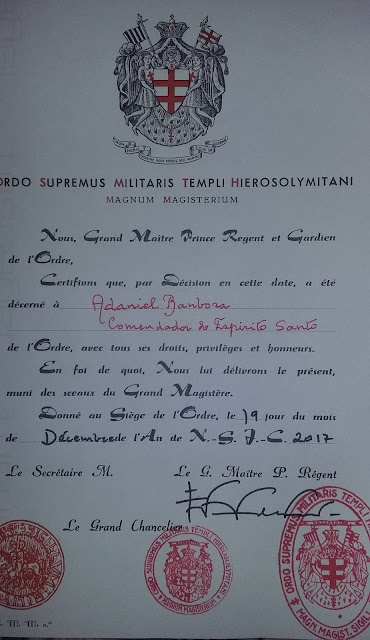 ORDO SUPREMUS MILITARIS TEMPLI HIEROSOLYMITANI
MAGNUM MAGISTERIUM
Nous, Grand Maître Prince Regent et Gardien
de l'Ordre,
Certifions que, par Décision en cette date, a été
décerné à Adaniel Barbosa
Comendador do Espírito Santo
de l'Ordre, avec tous ses droits, privilèges et honneurs.
En foi de quoi, Nous lui délivrons le présent,
muni des sceaux du Grand Magistère.
Donné au Siège de l'Ordre, le 19 jour du mois
de Décembre de l'An de N.-S. J.-C. 2017
Le Secrétaire M. Le G. Maître P. Régent
Le Grand Chancelier
SUPREMUS MILITARIS TEMPLI
MAGNUM MAGISTERIUM
ORDO SUPREMUS MILITARIS TEMPLI
MAGN. MAGIST. SIGIL